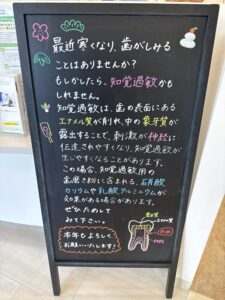 最近寒くなり、歯がしみる
ことはありませんか?
もしかしたら、知覚過敏かも
しれません。
知覚過敏は、歯の表面にある
エナメル質が削れ、中の象牙質が
露出することで、刺激が神経に
伝達されやすくなり、知覚過敏が
生じやすくなることがあります。
この場合、知覚過敏用の
歯磨き粉に含まれる、硝酸
カリウムや乳酸アルミニウムが
効果がある場合があります。
ぜひためして
みて下さい。
本年もよろしく
お願いいたします!
象牙質
エナメル質